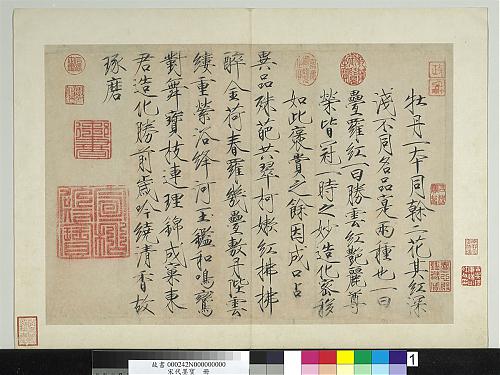 牡丹一本同幹二花其紅深
淺不同名品寔兩種也一曰
疊羅紅一曰勝雲紅艷麗尊
榮皆冠一時之妙造化密移
如此褒賞之餘因成口占
異品殊葩共翠柯嫩紅拂拂
醉金荷春羅幾疊敷丹陛雲
縷重縈浴絳河玉鑑和鳴鸞
對舞寶枝連理錦成窠東
君造化勝前歲吟繞清香故
琢磨
故書 000242N000000000
宋代墨寶 冊
1